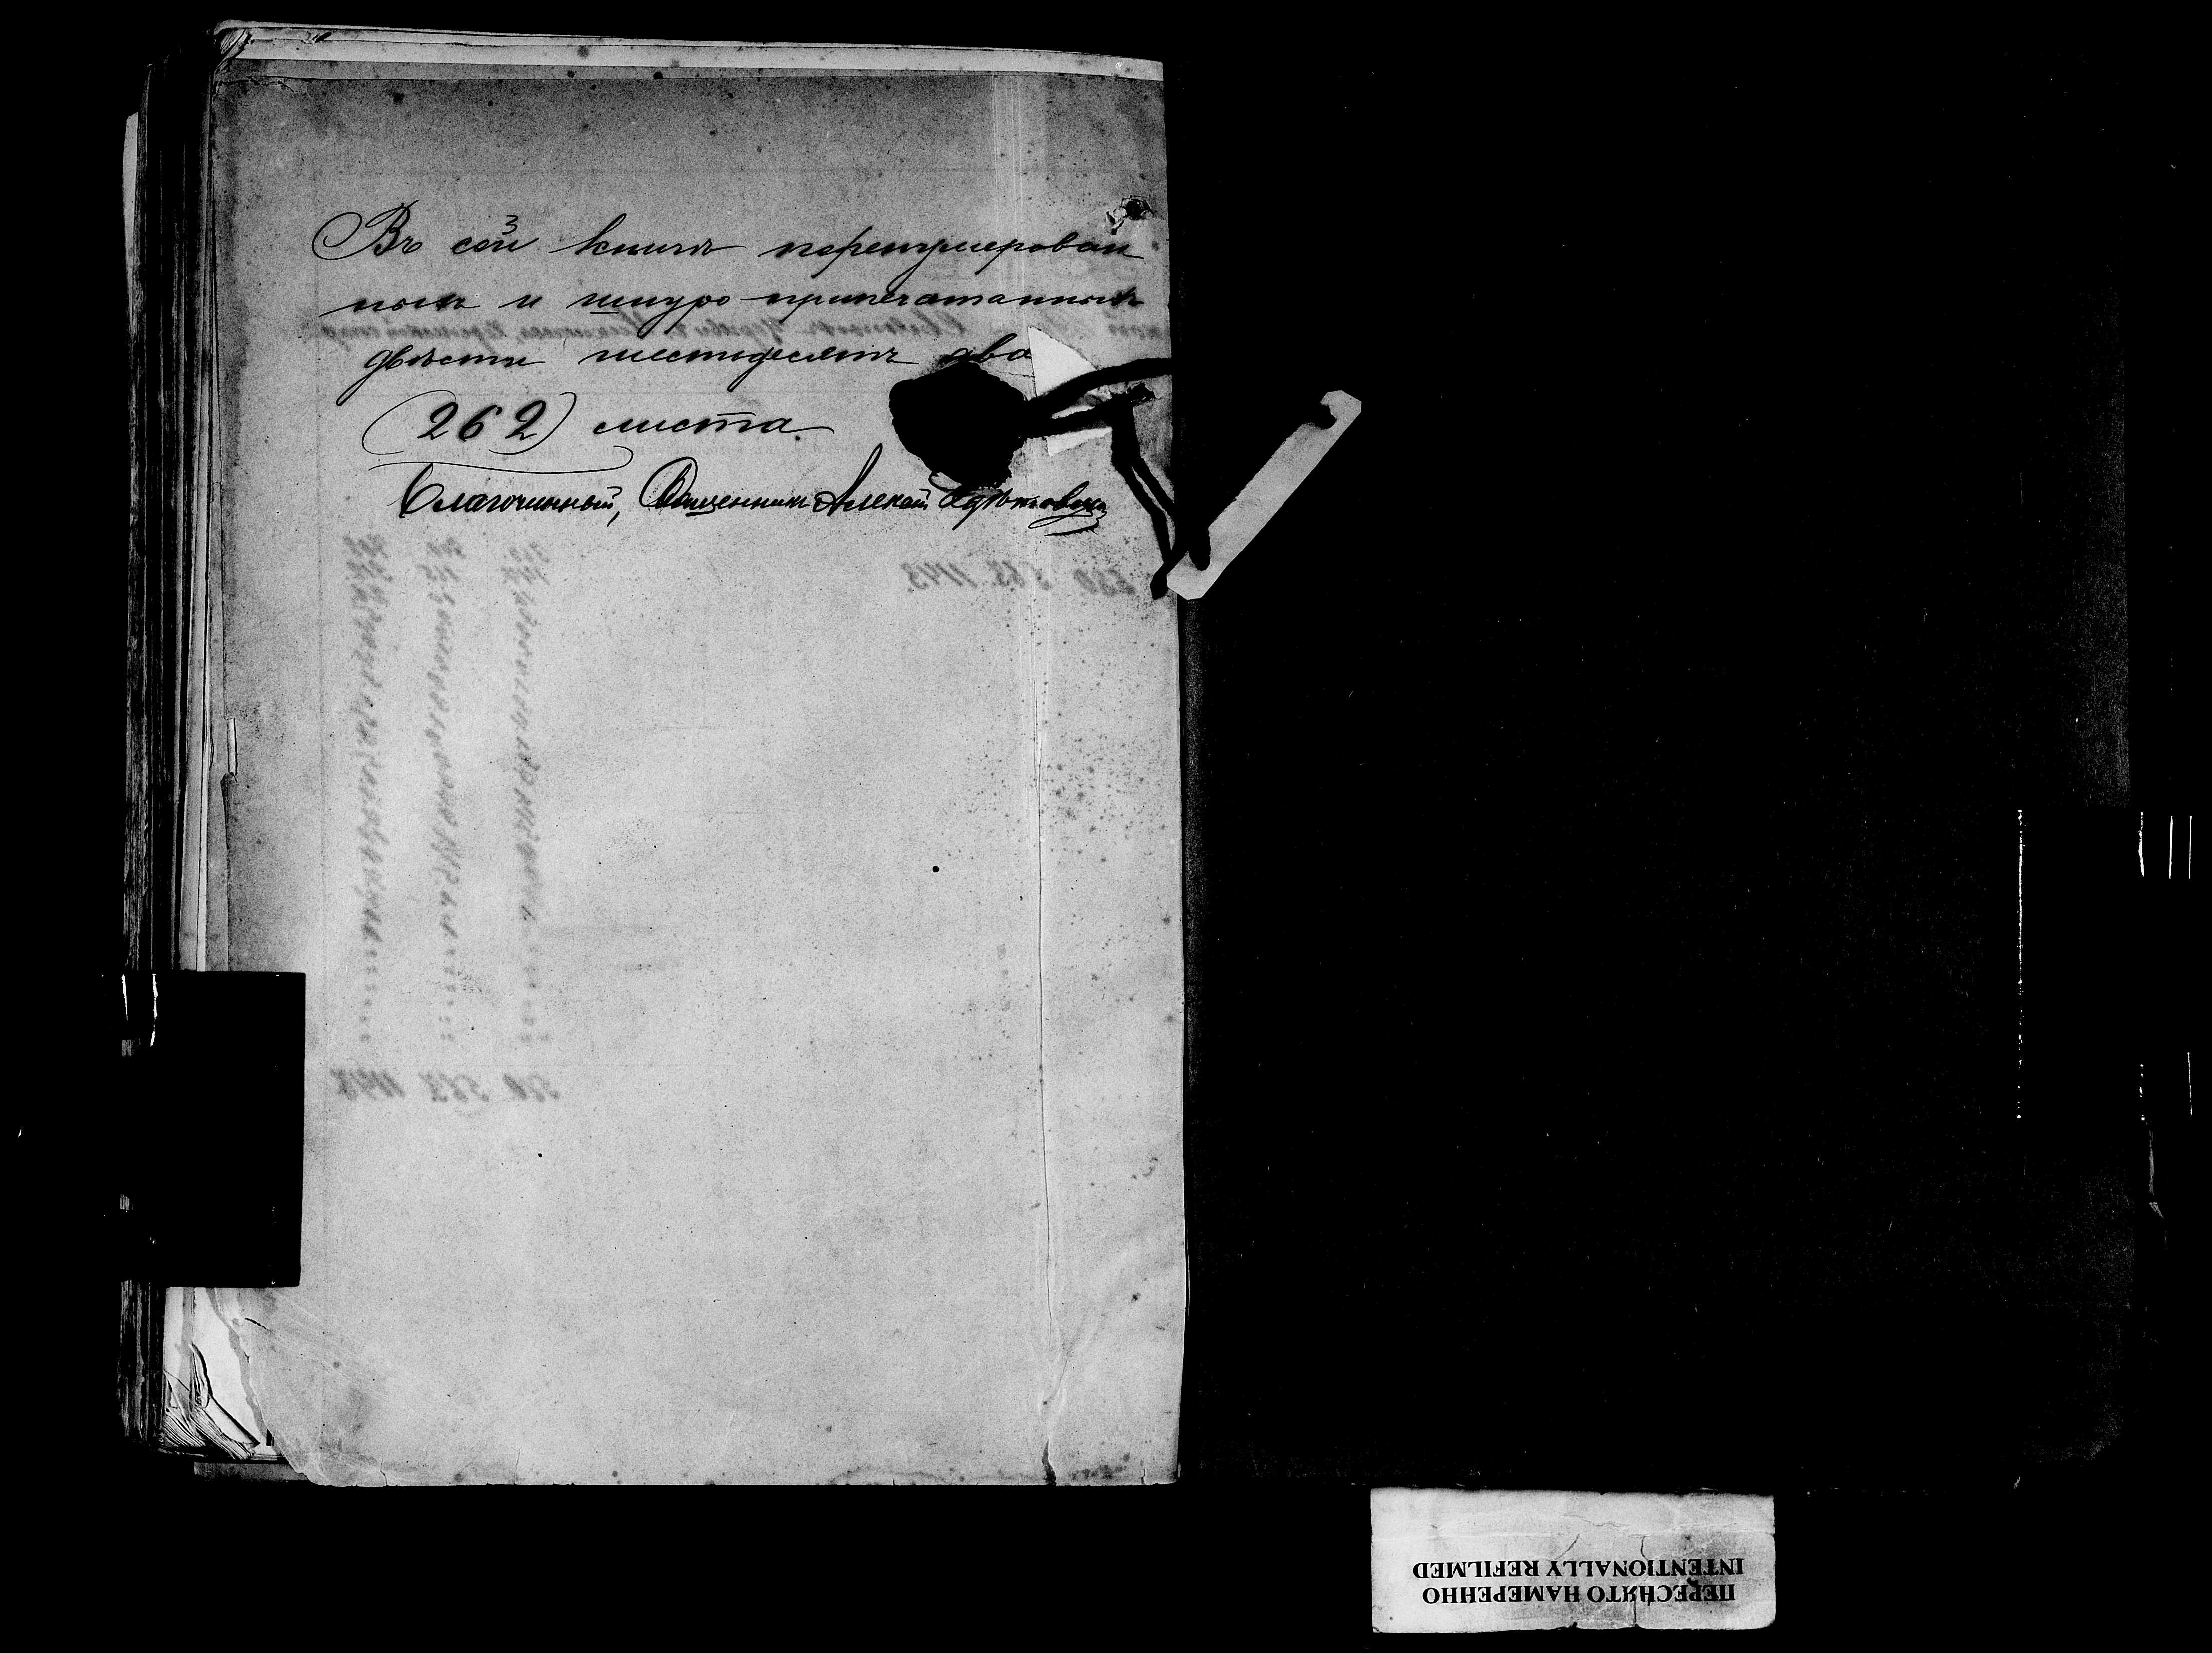 Въ сей книгѣ перенумерован
ныхъ и шнуро-припечатанныхъ
двѣсти шестьдесятъ два
(262) листа.
Благочинный, Священникъ Алексій
ПЕРЕСНЯТО НАМЕРЕННО
INTENTIONALLY REFILMED